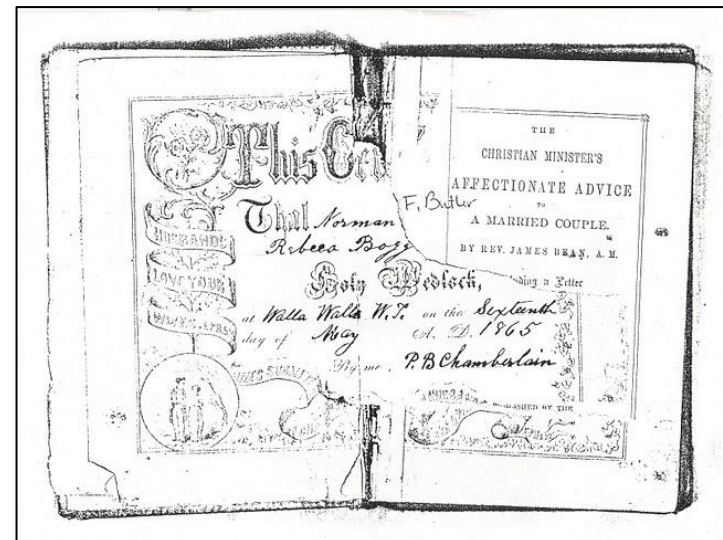 This Cer
That Norman F. Butler
Rebeca Bogg
Holy Wedlock,
at Walla Walla W.T. on the Sexteenth
day of May A. D. 1865
By me, P. B Chamberlain
HUSBANDS
LOVE YOUR
WIVES
THE
CHRISTIAN MINISTER'S
AFFECTIONATE ADVICE
TO
A MARRIED COUPLE.
BY REV. JAMES BEAN, A. M.
a Letter
BY THE